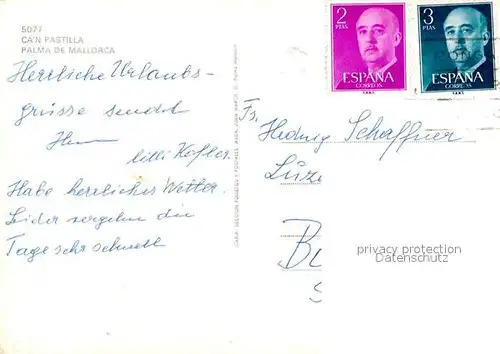 5077
CA'N PASTILLA
PALMA DE MALLORCA
Herrliche Urlaubs-
grüsse sendet
Ihnen
Lilli Kofler
Habe herrliches Wetter.
Leider vergehen die
Tage sehr schnell
2
PTAS
ESPAÑA
CORREOS
3
PTAS
ESPAÑA
CORREOS
Fr.
Hedwig Schaffner
Luze
B
privacy protection
Datenschutz